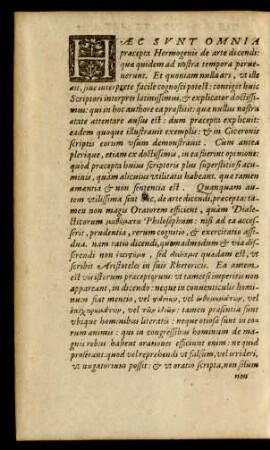 HÆC SVNT OMNIA
præcepta Hermogenis de arte dicendi:
quæ quidem ad nostra tempora perue-
nerunt. Et quoniam nulla ars, vt illo
ait, sine interprete facile cognosci potest: contigit huic
Scriptori interpres latinissimus, & explicator doctissi-
mus: qui in hoc authore ea præstitit: quæ nullus nostra
ætate attentare ausus est: dum præcepta explicuit:
eadem quoque illustrauit exemplis: & in Ciceronis
scriptis eorum vsum demonstrauit. Cum antea
plerique, etiam ex doctissimis, in ea fuerint opinione:
quod præcepta huius scriptoris plus superstitiosi acu-
minis, quàm alicuius vtilitatis habeant. quæ tamen
amentia & non sententia est. Quanquam au-
tem vtilissima sint hæc, de arte dicendi, præcepta: ta-
men non magis Oratorem efficient, quàm Diale-
cticorum Philosophum: nisi ad ea acces-
serit, prudentia, rerum cognitio, & exercitatio assi-
dua. nam ratio dicendi, quemadmodum & via dis-
serendi non sed quædam est, vt
scribit Aristoteles in suis Rhetoricis. Ea tamen
est vis istorum præceptorum: vt tametsi imperitis non
appareant, in dicendo: neque in conuenticulis homi-
num fiat mentio, vel vel
vel vel tamen præsentia sunt
vbique hominibus literatis: neque otiosa sunt in eo-
rum animis: qui in congressibus hominum de ma-
gnis rebus habent orationes efficiunt enim: ne quid
proferant: quod vel reprehendi vt falsum, vel irrideri,
vt nugatorium possit: & vt oratio scripta, non solum
non